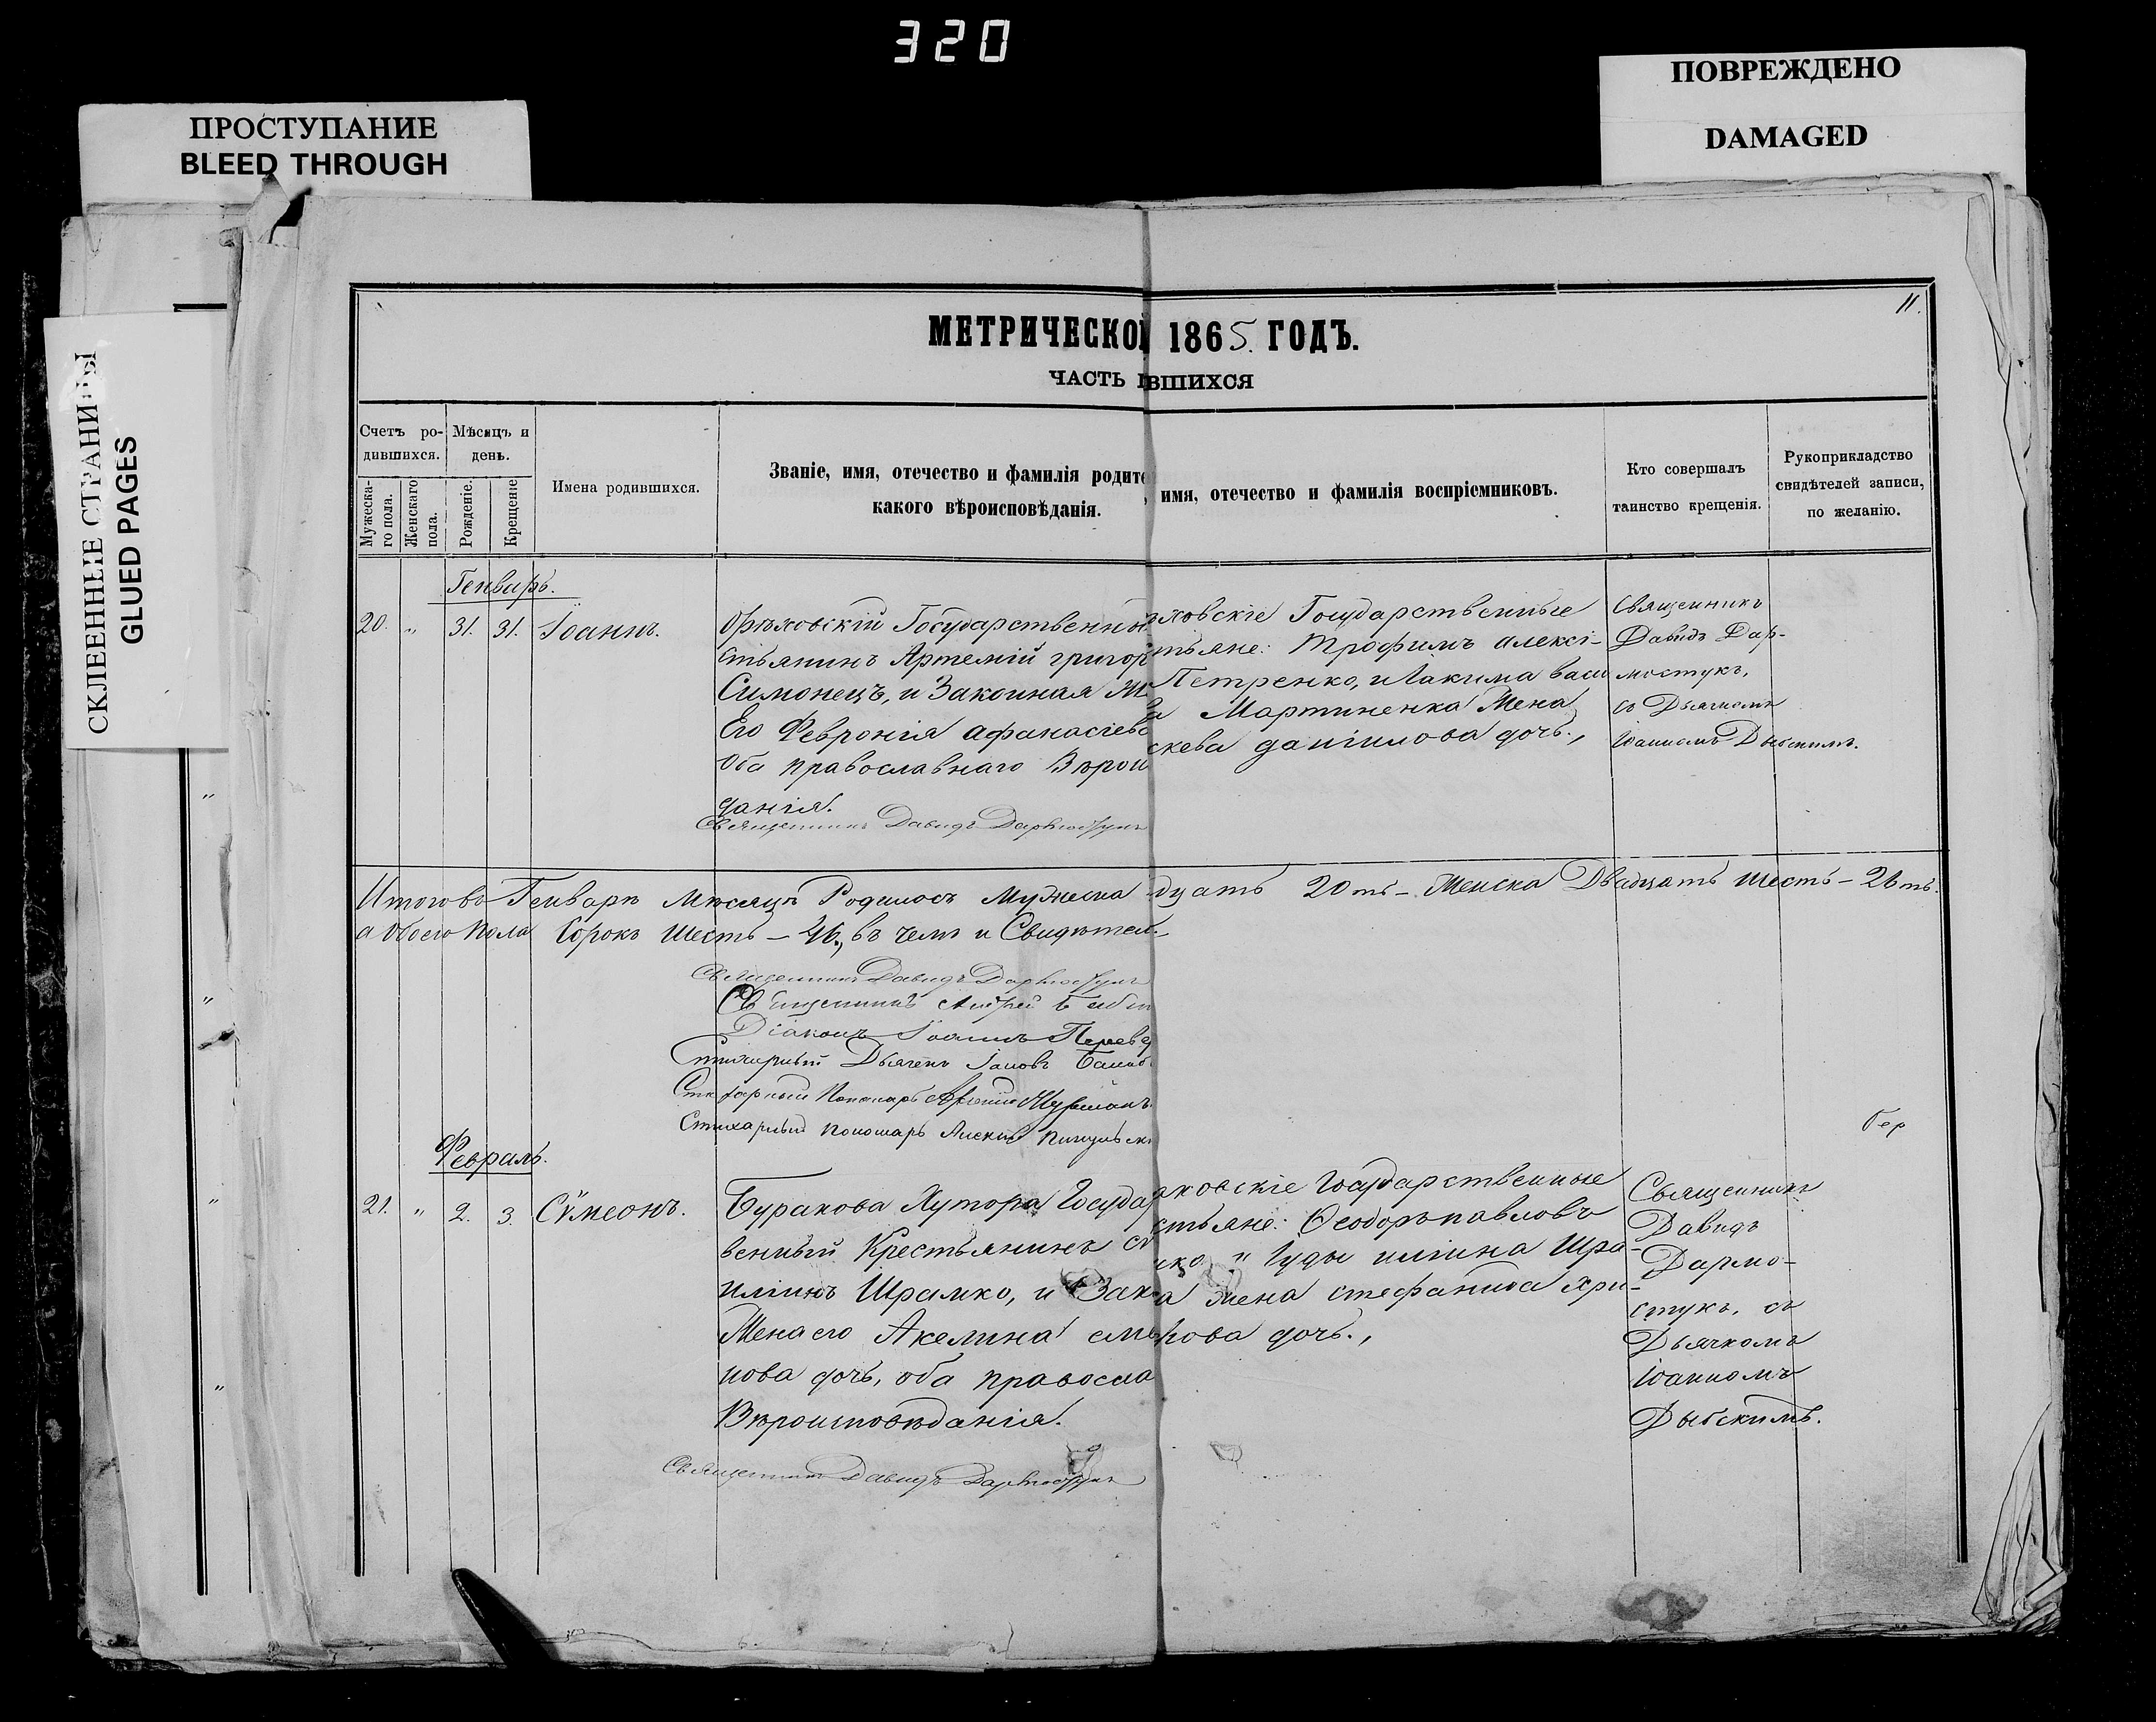 320
ПРОСТУПАНИЕ
BLEED THROUGH
ПОВРЕЖДЕНО
DAMAGED
СКЛЕЕННЫЕ СТРАНИЦЫ
GLUED PAGES
11.
МЕТРИЧЕСКОЙ 1865. ГОДЪ.
ЧАСТЬ І ВШИХСЯ
Счетъ ро-
дившихся.
Мѣсяцъ и
день.
Мужеска-
го пола.
Женскаго
пола.
Рожденіе.
Крещеніе
Имена родившихся.
Званіе, имя, отечество и фамилія родите
какого вѣроисповѣданія.
имя, отечество и фамилія воспріемниковъ.
Кто совершалъ
таинство крещенія.
Рукоприкладство
свидѣтелей записи,
по желанію.
Генварь.
20. " 31. 31. Іоаннъ.
Орѣховскій Государственны
стьянинъ Артемій григор
Симонецъ, и Законная Ж
Его Февронія афанасіев
Оба православнаго Вѣрои
данія.
Священникъ Давидъ Дармостукъ
ховскіе Государственные
тьяне: Трофимъ алексі-
Петренко, и Іакима васи
а Мартиненка Жена
скева даніилова дочь.,
Священникъ
Давидъ Дар-
мостукъ,
съ Дьячкомъ
Іоанномъ Дыбскимъ.
Итого въ Генварѣ Мѣсяцѣ Родилось Мужеска дцать 20ть - Женска Двадцать шесть - 26ть.
а Обоего пола Сорокъ Шесть - 46., въ чемъ и Свидѣтел.
Священникъ Давидъ Дармостукъ
Священникъ Андрей
Діаконъ Іоаннъ Перевер
Стихарный Дьячекъ Іаковъ
Стихарный Пономарь
Стихарный пономарь Алексій
Февраль.
21. " 2. 3. Сѵмеонъ.
Буракова Хутора Государ
венный Крестьянинъ
иліинъ Шрамко, и Зак
Жена его Акелина сим
нова дочь, оба православ
Вѣроисповѣданія.
Священникъ Давидъ Дармостукъ
ховскіе Государственные
стьяне: Ѳеодоръ павловъ
нко " Іуды иліина Шра-
а жена стефанида
нова дочь.,
Священникъ
Давидъ
Дармо-
стукъ, съ
Дьячкомъ
Іоанномъ
Дыбскимъ.